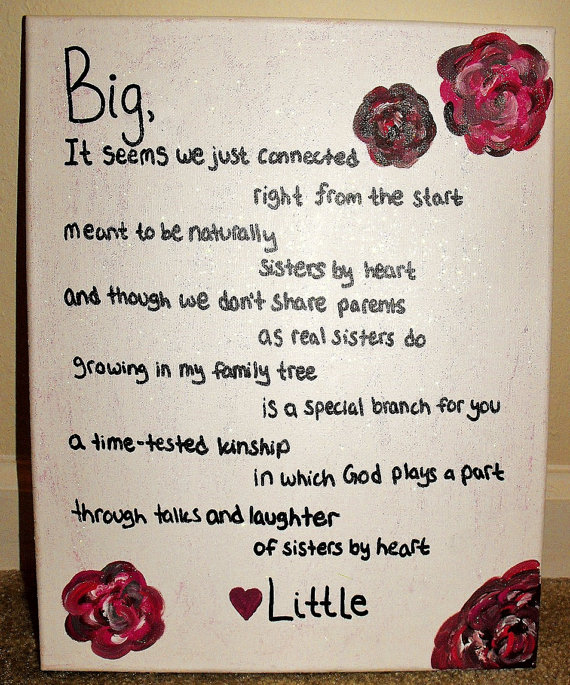 Big,
It seems we just connected
right from the start
meant to be naturally
sisters by heart
and though we don't share parents
as real sisters do
growing in my family tree
is a special branch for you
a time-tested kinship
in which God plays a part
through talks and laughter
of sisters by heart
♥Little